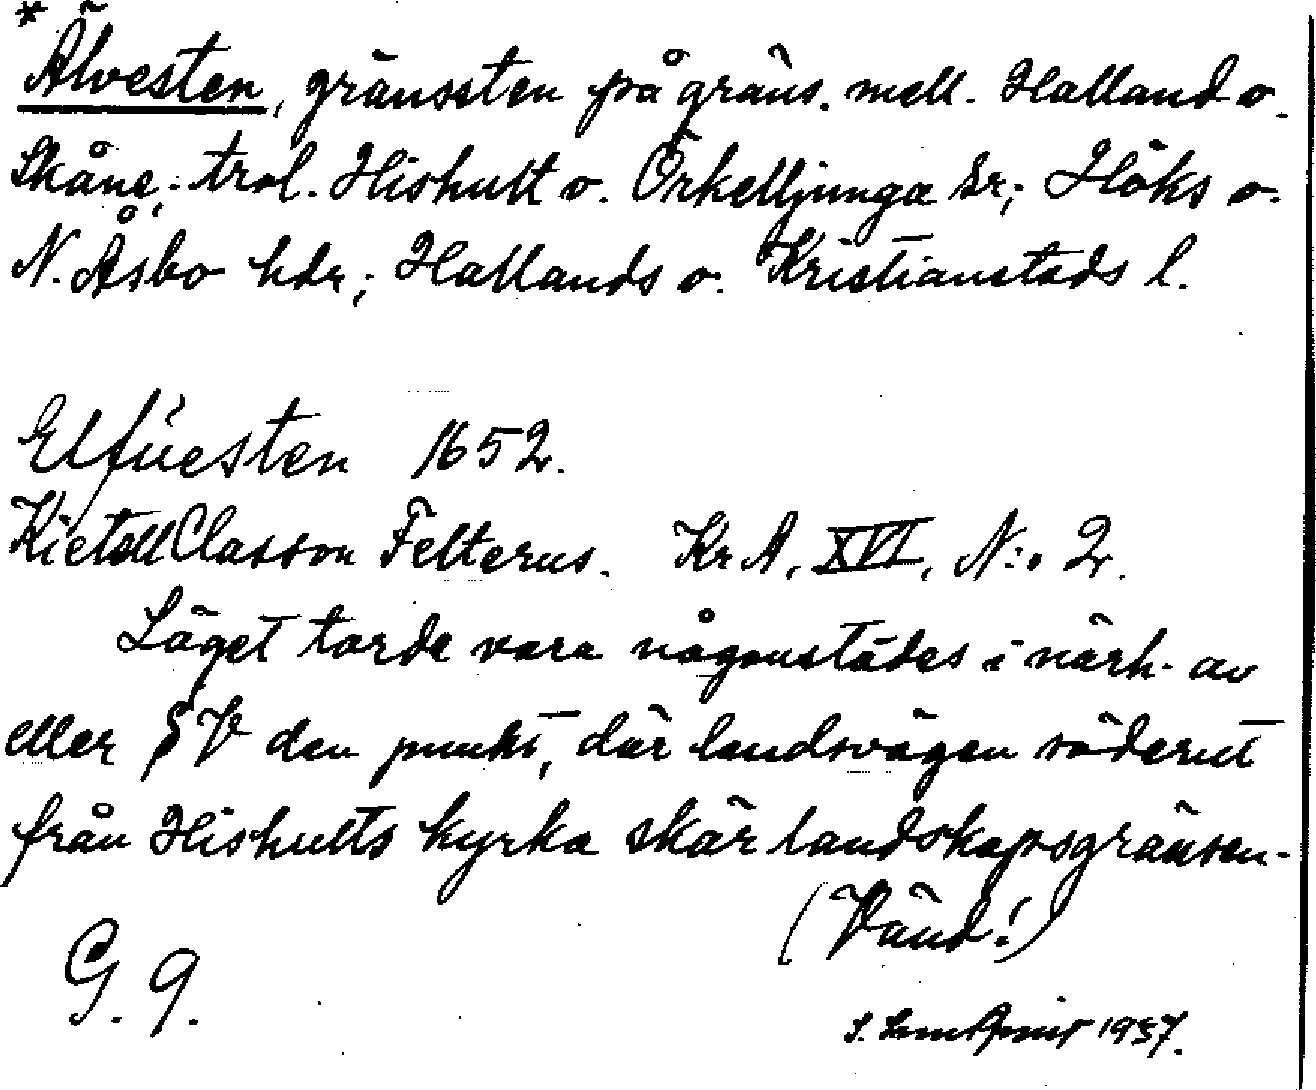 *
Älvesten, gränssten på gräns. mell. Halland o.
Skåne; trol. Hishult o. Örkelljunga sr; Höks o.
N. Åsbo hdr; Hallands o. Kristianstads l.
Elfüesten 1652.
Kietell Classon Felterus. Kr A, XVI, N:o 2.
Läget torde vara någonstädes i närh. av
eller SV den punkt, där landsvägen söderut
från Hishults kyrka skär landskapsgränsen.
(Vänd!)
G. 9.
S. 1937.